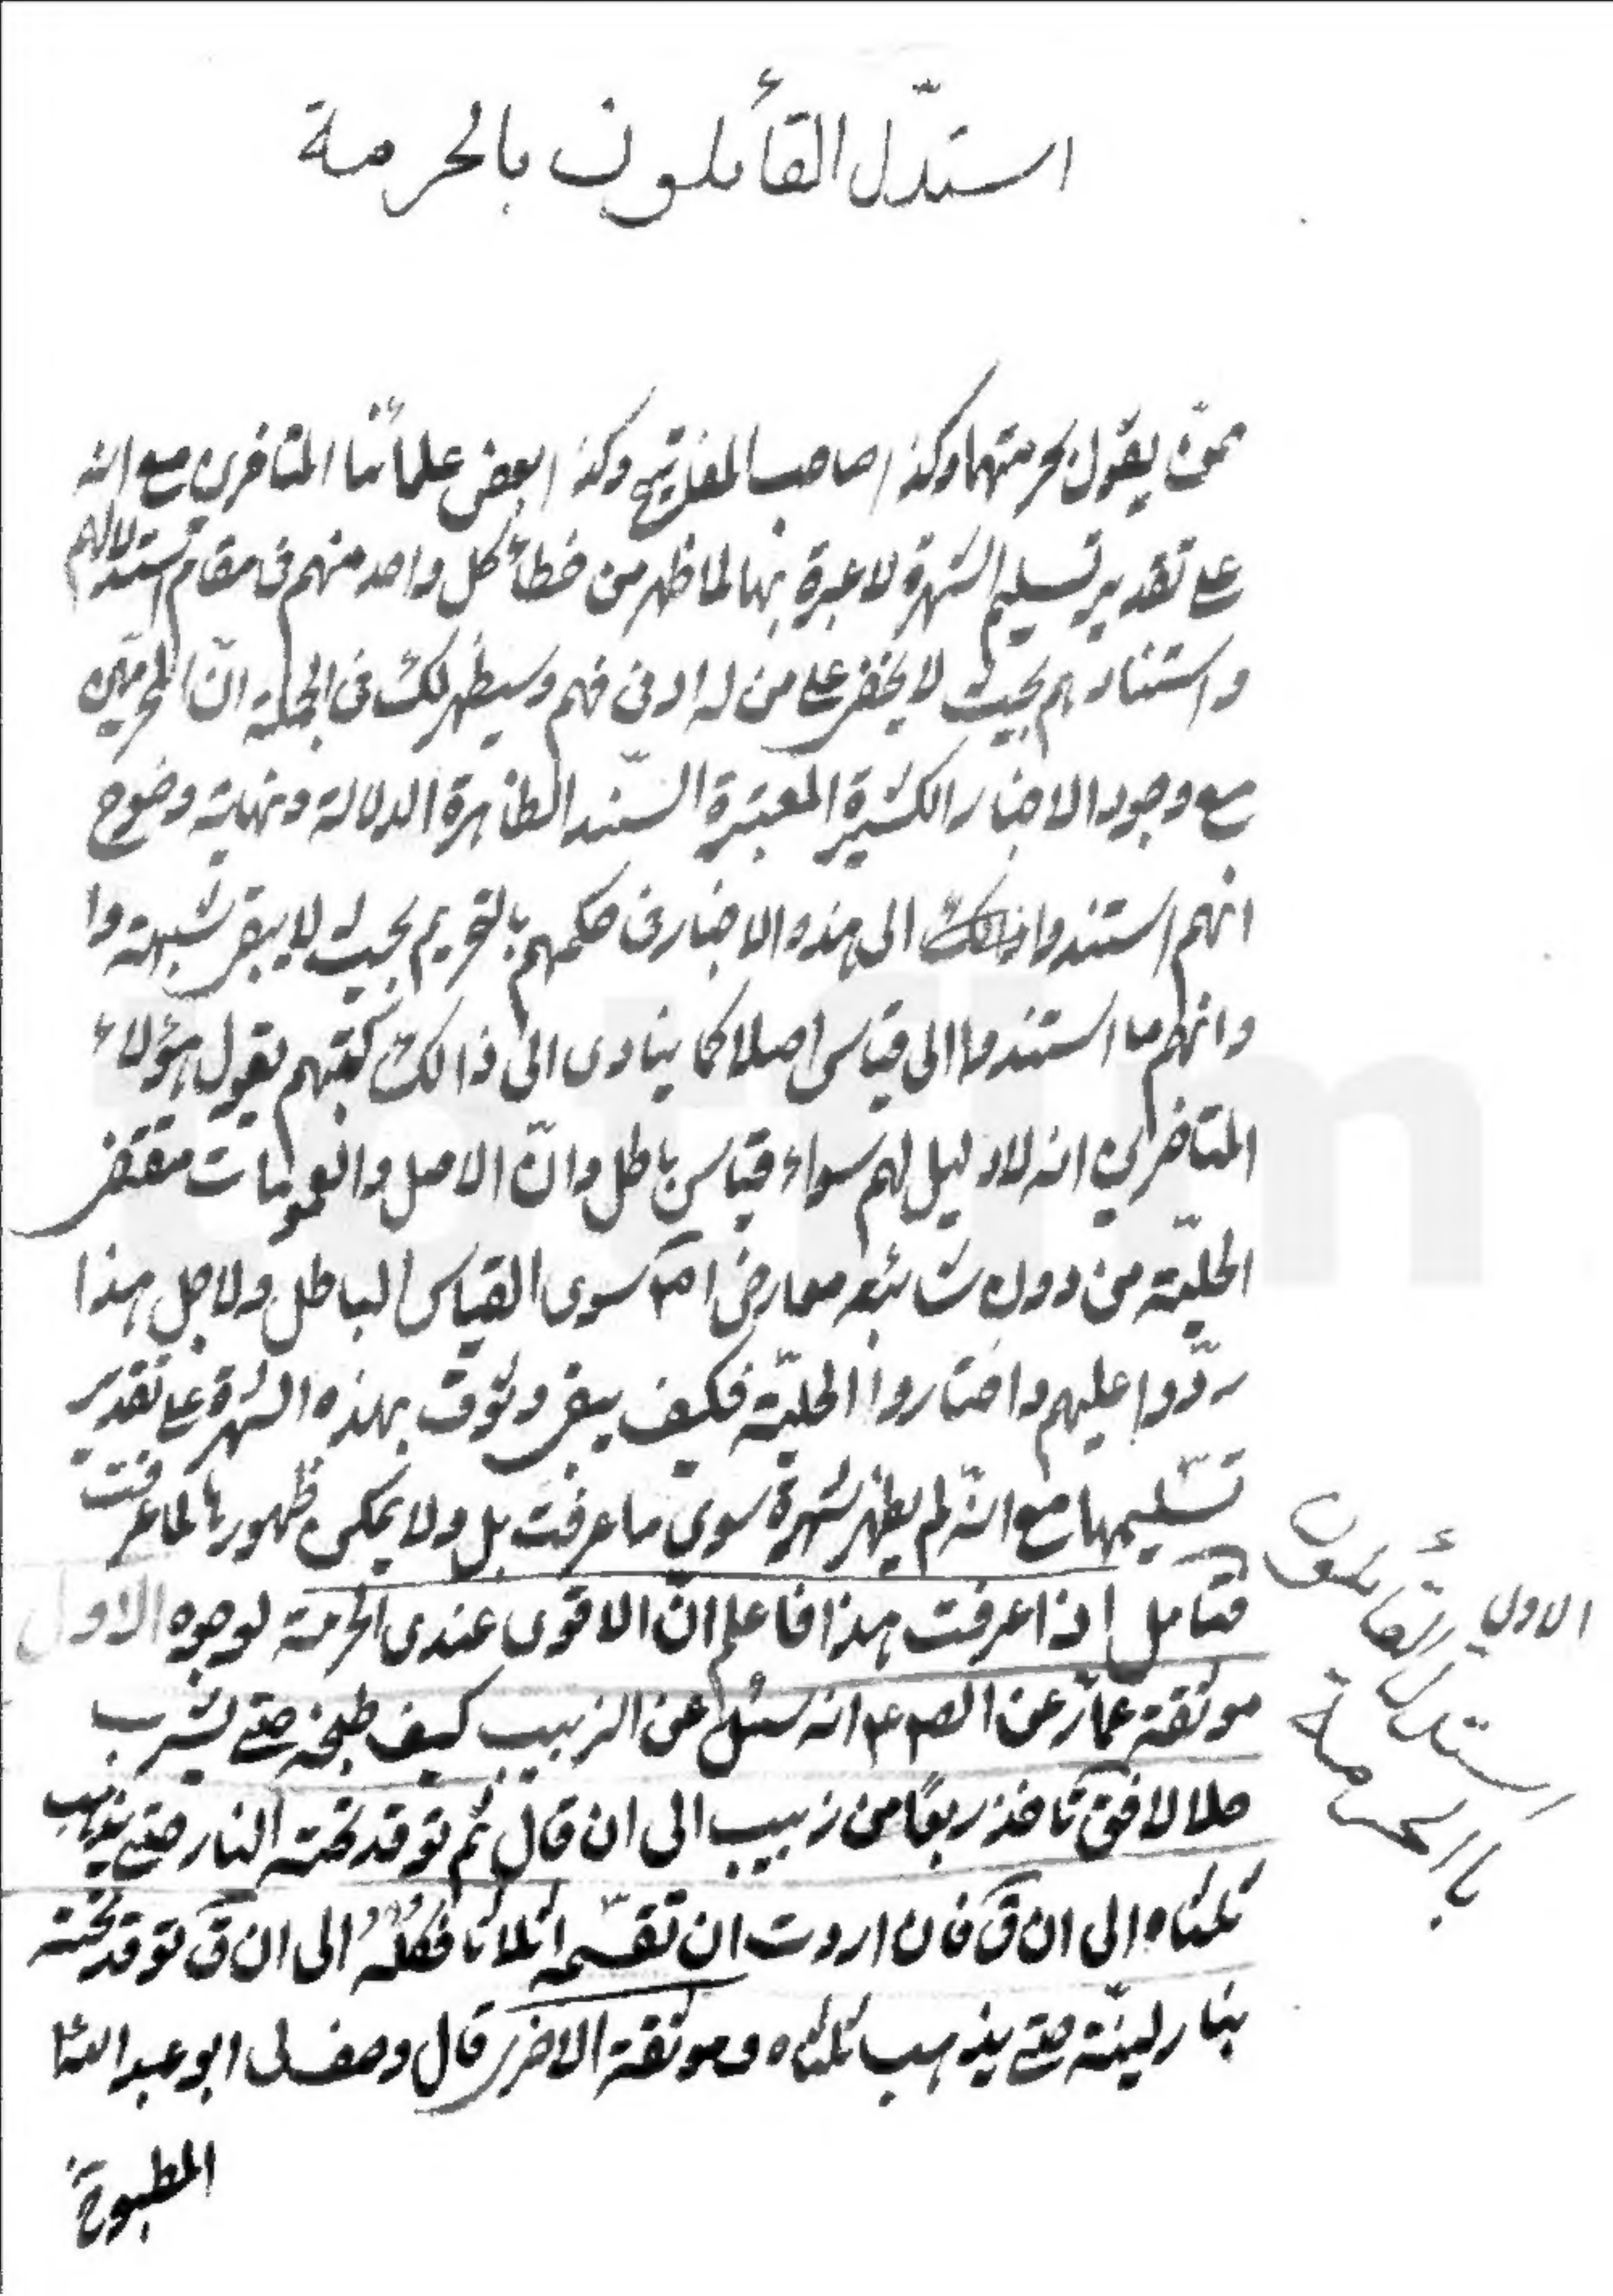 استدلّ القأئلون بالحرمة
ممّن يقول بحرمتهما وكذا صاحب المفاتيح وكذا بعض علمائنا المتأخرين مع انه
على تقدير تسليم الشهرة لا عبرة بها لما ظهر من خطأ كل واحد منهم فى مقام استدلالهم
واستنادهم بحيث لا يخفى على من له ادنى فهم وسيظهر لك فى الجملة انّ المحرّمين
مع وجود الاخبار الكثيرة المعتبرة السّند الظاهرة الدلالة ونهاية وضوح
انهم استندوا الى هذه الاخبار فى حكمهم بالتحريم بحيث لا يبقى شبهة وا
وانهم ما استندوا الى قياس اصلا كما ينادى الى ذالك كتبهم يقول هؤلاء
المتاخرين انه لا دليل لهم سواء قياس باطل وانّ الاصل والعمومات مقتضى
الحليّة من دون شائبه معارض سوى القياس الباطل ولاجل هذا
ردّوا عليهم واختاروا الحليّة فكيف يبقى وثوق بهذه الشهرة على تقدير
تسليمها مع انّه لم يظهر شهرة سوى ما عرفت بل ولا يمكن ظهورها لما عرفت
فتامل اذا عرفت هذا فاعلم انّ الاقوى عندى الحرمة لوجوه الاول
موثقة عمار عن الصم انه سئل عن الزبيب كيف طبخه حتى يشرب
حلالا فق تاخذ ربعًا من زبيب الى ان قال ثم توقد تحته النار حتى يذهب
ثلثاه الى ان ق فان اردت ان تقسّمه اثلاثا فكله الى ان ق توقد تحته
بنار لينّة حتى يذهب ثلثاه وموثقة الاخرى قال وصف لى ابو عبد الله
المطبوخ
الاولى
القأئلون
استدل
با الحرمة